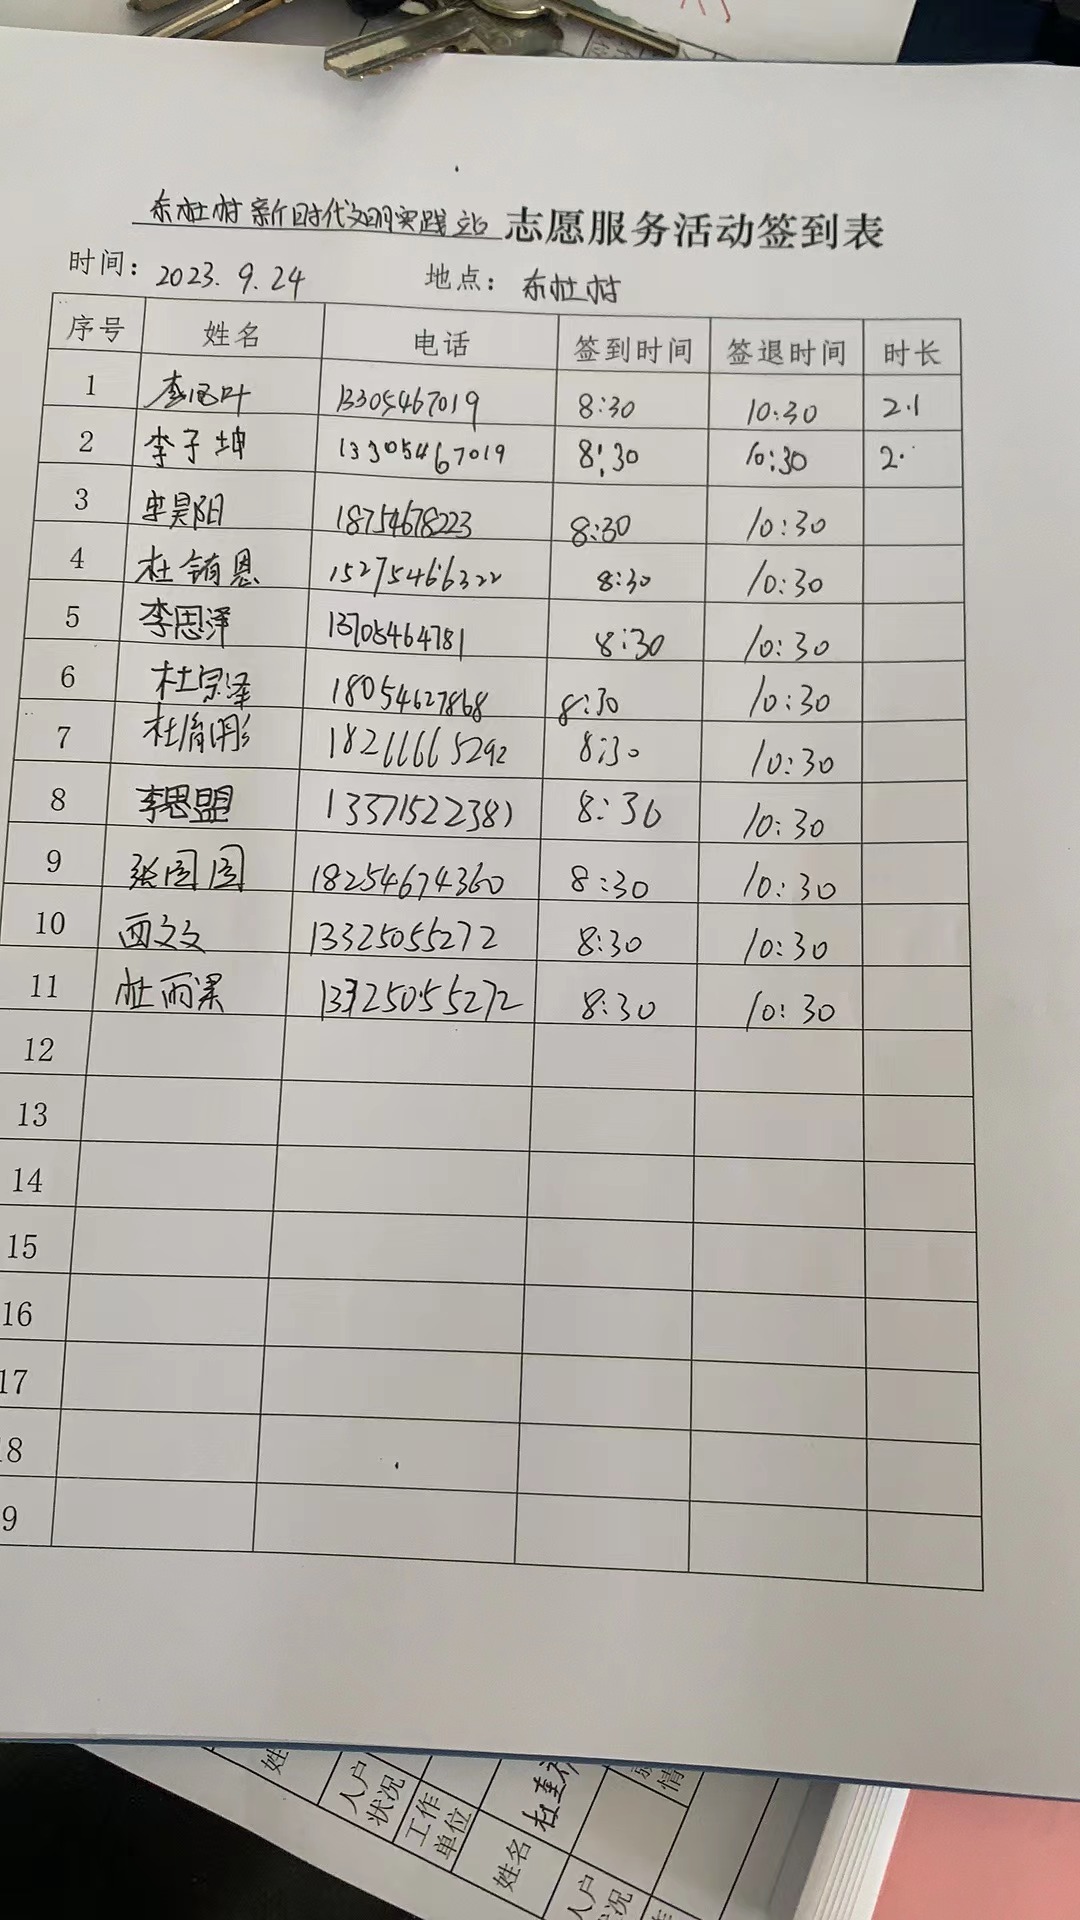 东杜村新时代文明实践站 志愿服务活动签到表
时间：2023.9.24 地点：东杜村
序号 姓名 电话 签到时间 签退时间 时长
1 13305467019 8:30 10:30 2.1
2 李子坤 13305467019 8:30 10:30 2.
3 昊阳 18754678223 8:30 10:30
4 杜 恩 15275466322 8:30 10:30
5 李思泽 13705464781 8:30 10:30
6 杜宗泽 18054627868 8:30 10:30
7 杜 彤 18266665292 8:30 10:30
8 李思盟 13371522381 8:30 10:30
9 张园园 18254674360 8:30 10:30
10 西文文 13325055272 8:30 10:30
11 杜雨 13325055272 8:30 10:30
12
13
14
15
16
17
18
9
姓 人户状况 工作单位 姓名 杜 情
人户状况